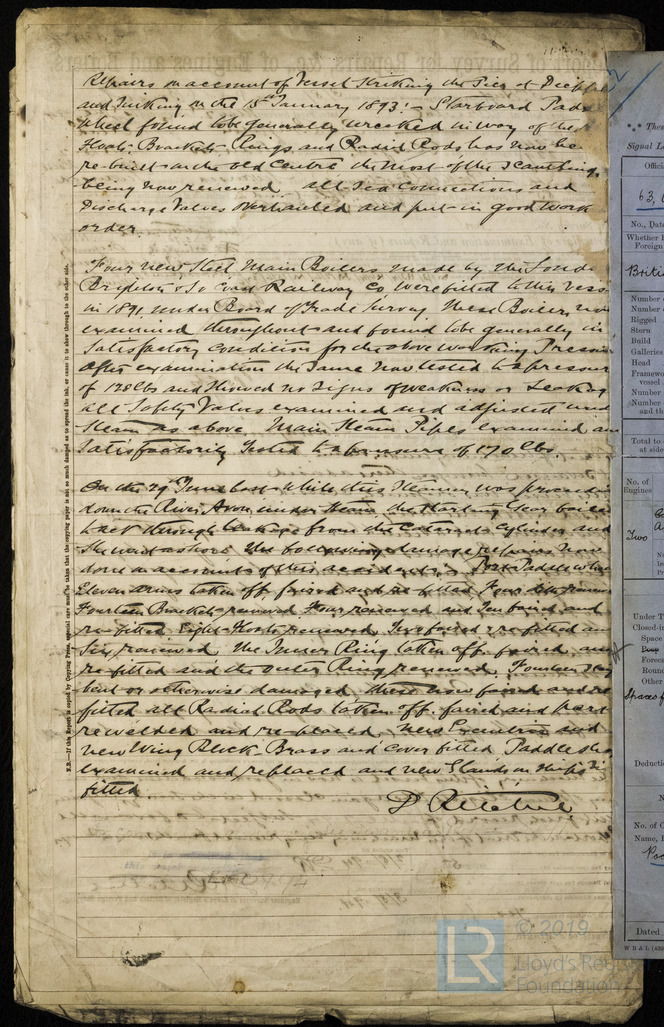 Repairs on account of Vessel Striking the Pier at Dieppe
and sinking on the 15th January 1893: – Starboard Padd
wheel found to be generally wrecked in way of the
Floats Brackets Rings and Radius Rods has now be
re-built on the old Centre the most of the Scantlings
being now renewed. all Sea Connections and
Discharge Valves overhauled and put in good work
order.
Four new Steel Main Boilers made by the Londo
Brighton & So Coast Railway Co were fitted to this vess
in 1891 under Board of Trade Survey. These Boilers now
examined throughout and found to be generally in
satisfactory condition for the above working Pressure
After examination the same now tested to a pressure
of 120 lbs and showed no signs of weakness or Leaking
all Safety Valves examined and adjusted under
steam as above. Main Steam Pipes examined an
satisfactorily Tested to a pressure of 170 lbs.
On the 29th June last while this Steamer was proceedi
down the River Avon under steam the Starting Gear
back through leakage from the Cataract Cylinder and
She went ashore. The following damage repairs now
done on account of this accident: Port Paddle wheel
Eleven arms taken off faired and re-fitted Four
Fourteen Brackets removed Four renewed and Ten faired and
re-fitted. Eight Floats removed, Two faired & re-fitted an
Six renewed. The Inner Ring taken off faired and
re-fitted and the outer Ring renewed. Fourteen
bent or otherwise damaged these now faired and re
fitted all Radius Rods taken off, faired and part
rewelded and re-placed, New Eccentric and
new Wing Block Brass and Cover fitted. Paddle
examined and replaced and new Glands on
fitted.
N.B.—If this Report is copied by Copying Press, special care must be taken that the copying paper is not so much damped as to spread the ink, or cause it to show through to the other side.
Signal L
Offici
63,
No., Date
Whether B
Foreign
Briti
Number
Number
Rigged
Stern
Build
Galleries
Head
Framewo
vessel
Number
Number
and th
Total to
at side
No. of
Engines
Two
Under T
Closed-in
Space
Poop
Force
Roun
Other
Spaces f
Deducti
No. of C
Name,
Dated
© 2019
Lloyd's Register
Foundation
LR